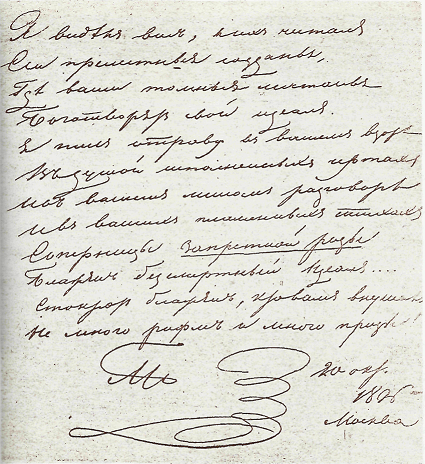 Я видѣлъ васъ, я ихъ читалъ
Сіи прелестныя созданья,
Гдѣ ваши томныя мечтанья
Боготворятъ свой идеалъ.
Я пилъ отраву въ вашемъ взорѣ
Въ душой исполненныхъ чертахъ
И въ вашемъ миломъ разговорѣ
И въ вашихъ пламенныхъ стихахъ
Соперницы запретной розы
Блаженъ безсмертный Идеалъ....
Стократъ блаженъ, кто вамъ внушалъ
Не много рифмъ и много прозы!
20 окт.
1826
Москва